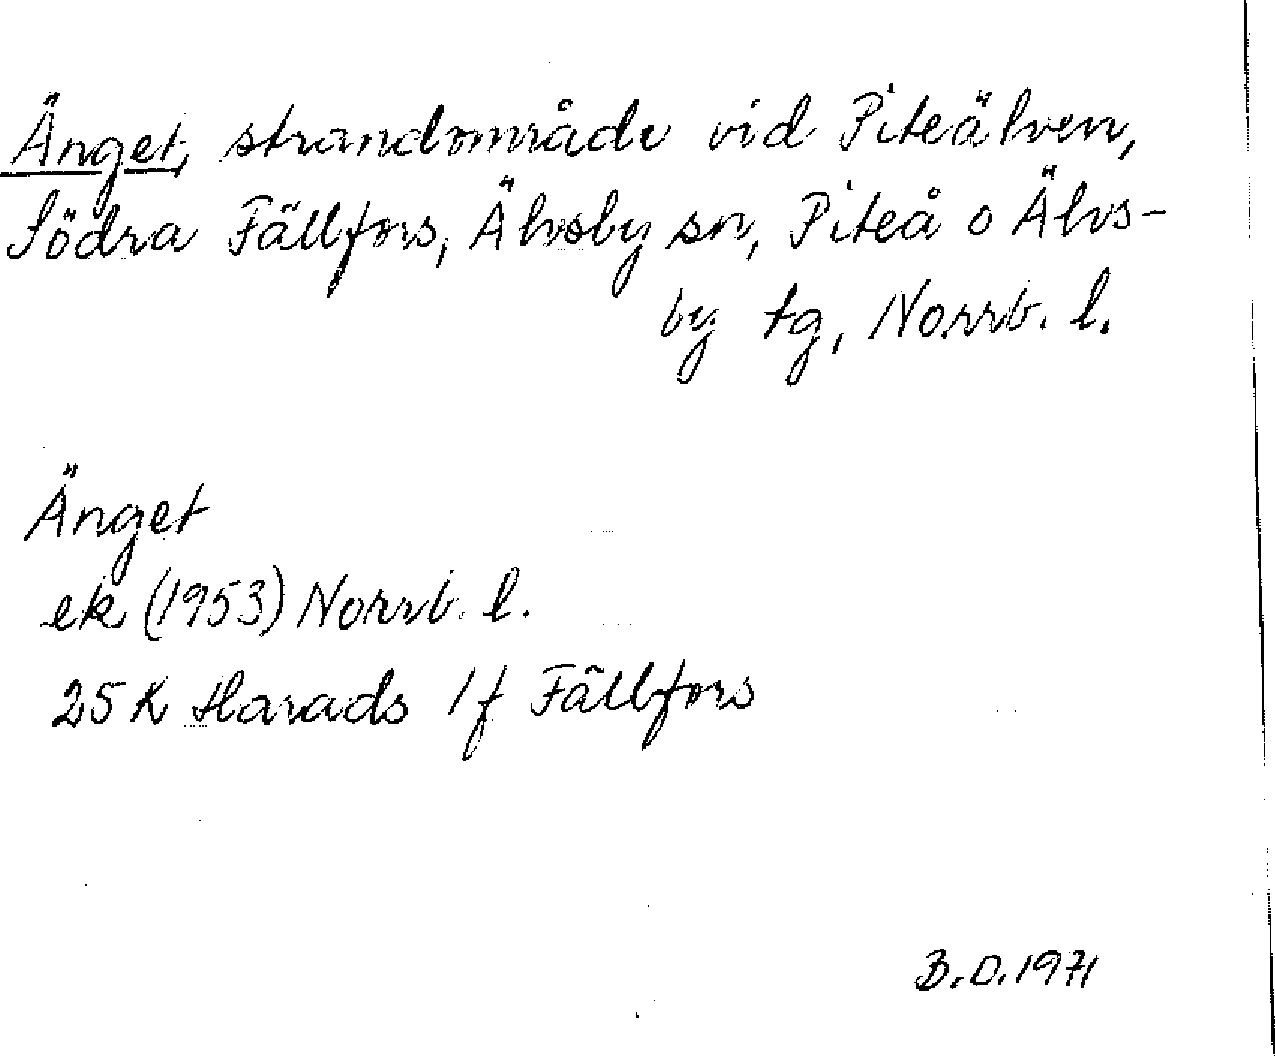 Änget, strandområde vid Piteälven,
Södra Fällfors, Älvsby sn, Piteå o Älvs-
by tg, Norrb. l.
Änget
ek (1953) Norrb. l.
25 K Harads 1f Fällfors
B.D. 1971